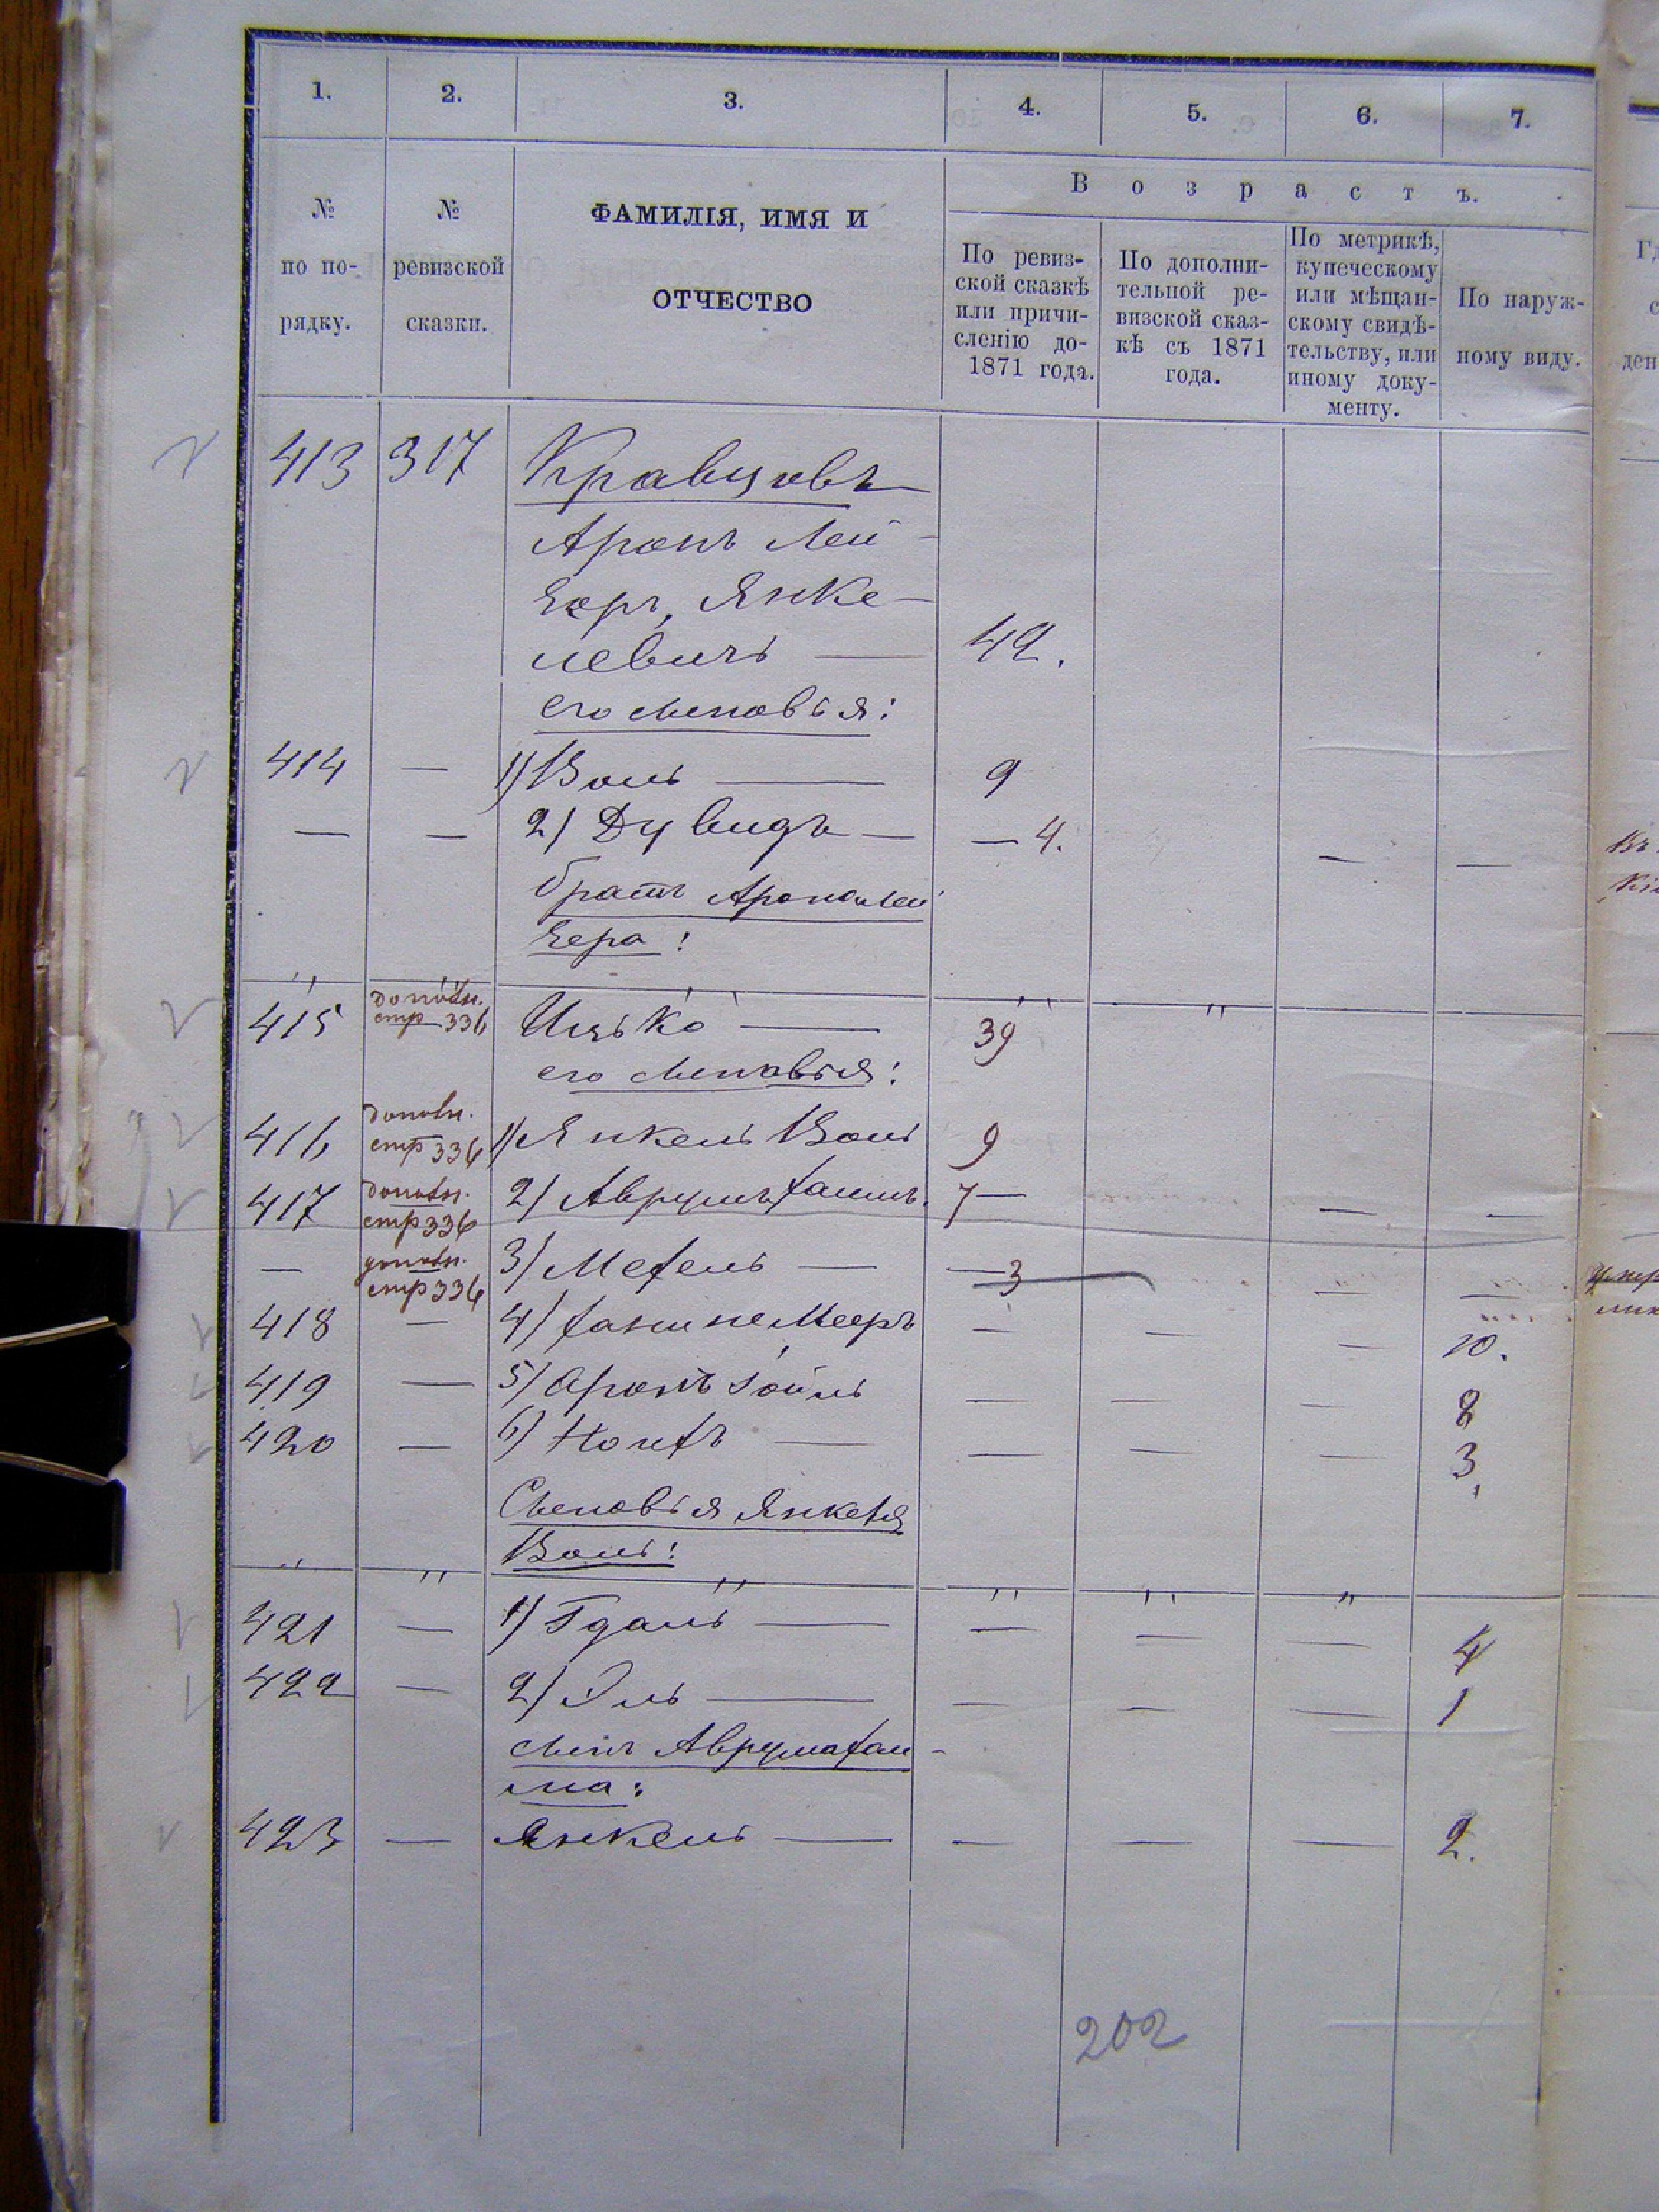 1. 2. 3. 4. 5. 6. 7.
№ по по-рядку.
№ ревизской сказки.
ФАМИЛІЯ, ИМЯ И
ОТЧЕСТВО
Возрастъ.
По ревиз-
ской сказкѣ
или причи-
сленію до
1871 года.
По дополни-
тельной ре-
визской сказ-
кѣ съ 1871
года.
По метрикѣ,
купеческому
или мѣщан-
скому свидѣ-
тельству, или
иному доку-
менту.
По наруж-
ному виду.
413 317 Кравцовъ
Аронъ Лей-
зоръ, Янке-
левичъ — 42.
его сыновья:
414 — 1) Воль — 9
— — 2) Дувидъ — — 4. — —
братъ Аронъ Лей
зера:
" " " "
415 дополн. стр 336 Ицько — 39
его сыновья:
416 дополн. стр 336 1) Янкель Воль 9
417 дополн. стр 336 2) Аврумъ Хаимъ. 7 — — —
— дополн. стр 336 3) Мехель — — 3 — —
418 — 4) Мееръ — — — 10.
419 — 5) Аронъ Іойль — — — 8
420 — 6) — — — — 3
Сыновья Янкеля
Воль:
" " " " " "
421 — 1) Гдаль — — — — 4
422 — 2) Эль — — — — 1
сынъ Аврума Хаи-
ма:
423 — Янкель — — — — 2.
202